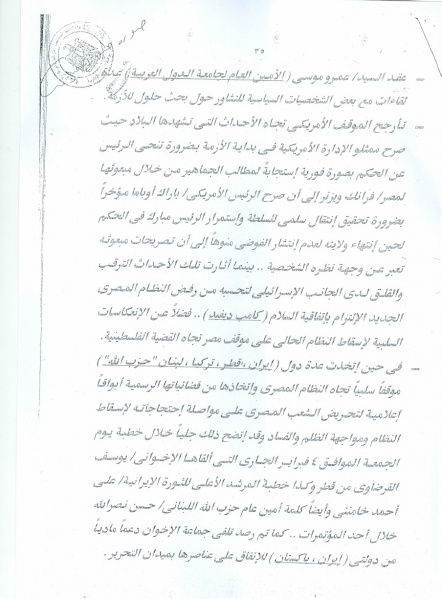 ٣٥
– عقد السيد/ عمرو موسى (الأمين العام لجامعة الدول العربية) عدة
لقاءات مع بعض الشخصيات السياسية للتشاور حول بحث حلول للأزمة.
– تأرجح الموقف الأمريكى تجاه الأحداث التى تشهدها البلاد حيث
صرح ممثلو الإدارة الأمريكية فى بداية الأزمة بضرورة تنحى الرئيس
عن الحكم بصورة فورية إستجابة لمطالب الجماهير من خلال مبعوثها
لمصر/ فرانك ويزنر إلى أن صرح الرئيس الأمريكى/ باراك أوباما مؤخراً
بضرورة تحقيق إنتقال سلمى للسلطة وإستمرار الرئيس مبارك فى الحكم
لحين إنتهاء ولايته لعدم إنتشار الفوضى منوهاً إلى أن تصريحات مبعوثه
تعبر عن وجهة نظره الشخصية .. بينما أثارت تلك الأحداث الترقب
والقلق لدى الجانب الإسرائيلى لتحسبه من رفض النظام المصرى
الجديد الإلتزام بإتفاقية السلام (كامب ديفيد) .. فضلاً عن الإنعكاسات
السلبية لإسقاط النظام الحالى على موقف مصر تجاه القضية الفلسطينية.
– فى حين إتخذت عدة دول (إيران ، قطر ، تركيا ، لبنان "حزب الله")
موقفاً سلبياً تجاه النظام المصرى وإتخاذها من فضائياتها الرسمية أبواقاً
إعلامية لتحريض الشعب المصرى على مواصلة إحتجاجاته لإسقاط
النظام ومواجهة الظلم والفساد وقد إتضح ذلك جلياً خلال خطبة يوم
الجمعة الموافق ٤ فبراير الجارى التى ألقاها الإخوانى/ يوسف
القرضاوى من قطر وكذا خطبة المرشد الأعلى للثورة الإيرانية/ على
أحمد خامنئى وأيضاً كلمة أمين عام حزب الله اللبنانى/ حسن نصرالله
خلال أحد المؤتمرات .. كما تم رصد تلقى جماعة الإخوان دعماً مادياً
من دولتى (إيران ، باكستان) للإنفاق على عناصرها بميدان التحرير .